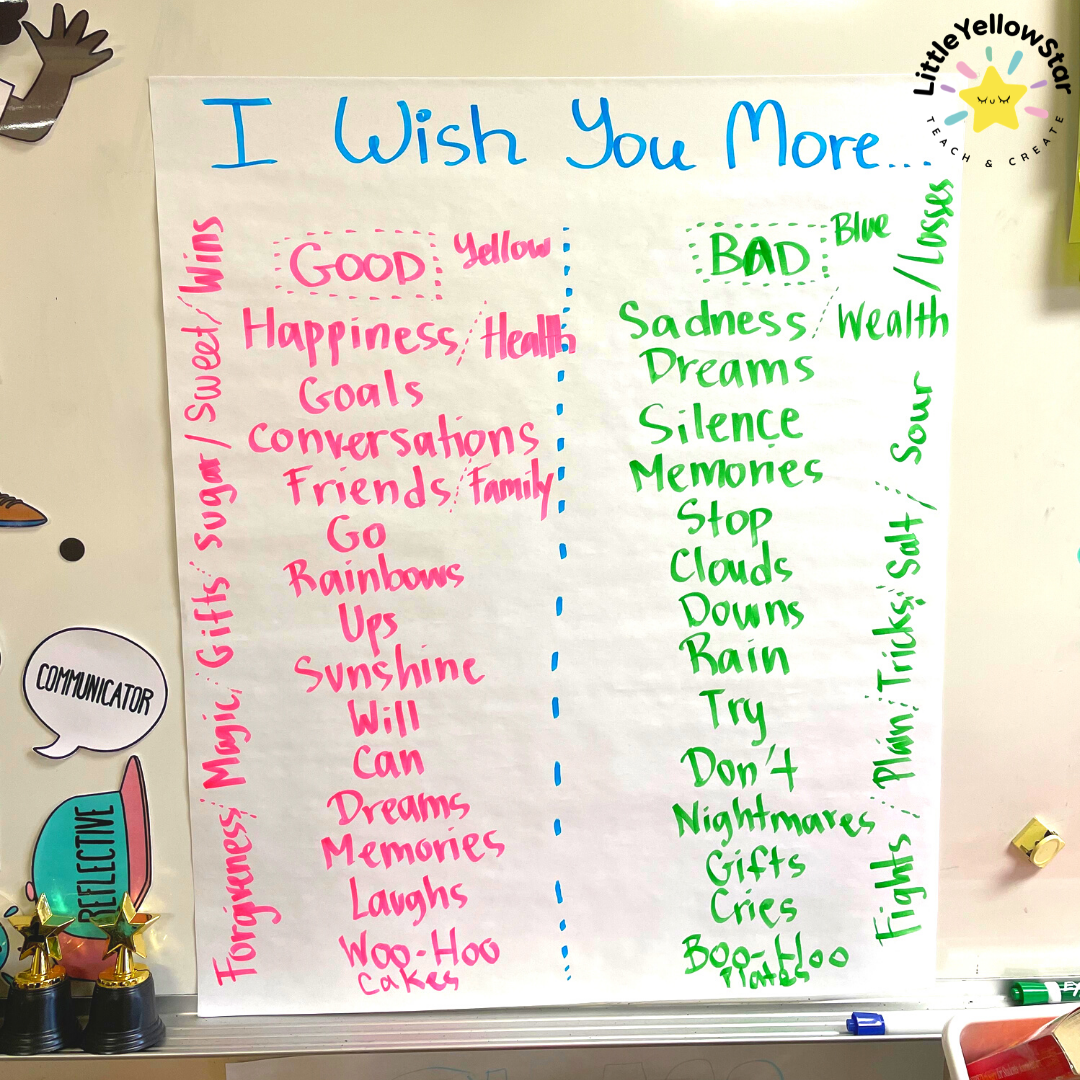 LittleYellowStar
TEACH & CREATE
I Wish You More...
GOOD Yellow
Happiness/Health
Goals
Conversations
Friends/Family
Go
Rainbows
Ups
Sunshine
Will
Can
Dreams
Memories
Laughs
Woo-Hoo
Cakes
Forgiveness/Magic/Gifts/Sugar/Sweet/Wins
BAD Blue
Sadness/Wealth
Dreams
Silence
Memories
Stop
Clouds
Downs
Rain
Try
Don't
Nightmares
Gifts
Cries
Boo-Hoo
Plates
Fights/Plain/Tricks/Salt/Sour
/Losses
COMMUNICATOR
REFLECTIVE